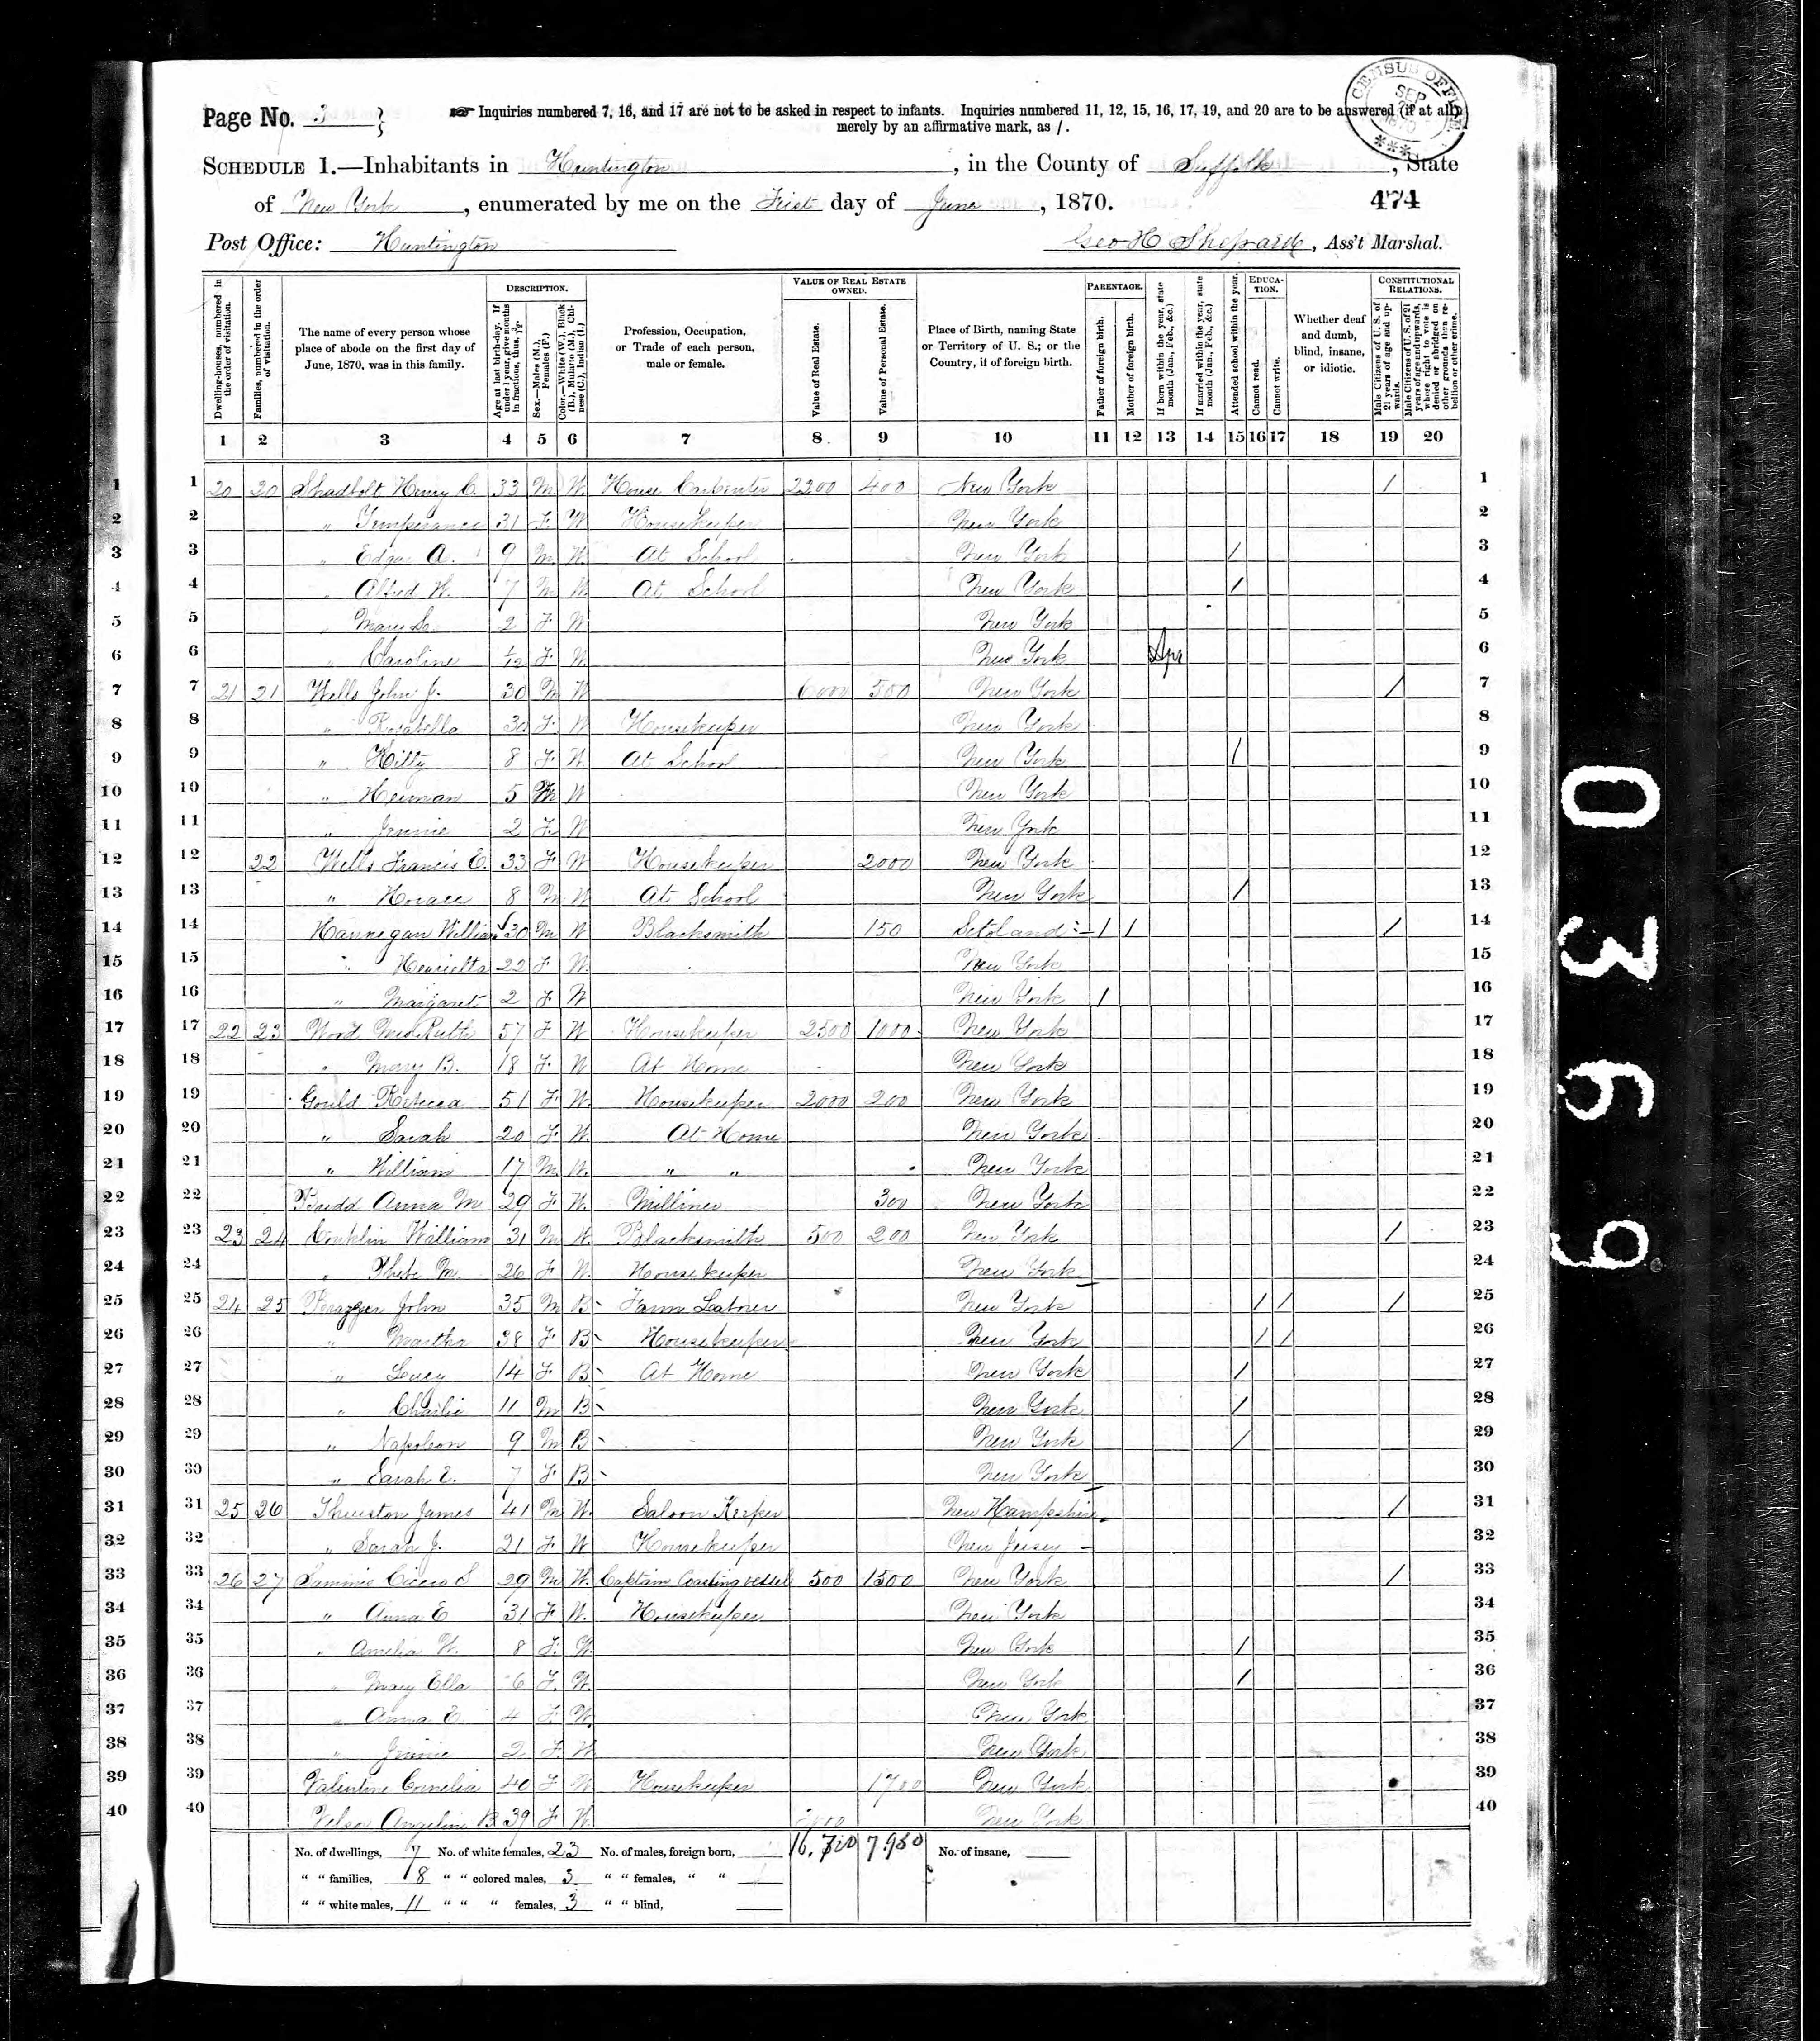 Page No. 3
Inquiries numbered 7, 16, and 17 are not to be asked in respect to infants. Inquiries numbered 11, 12, 15, 16, 17, 19, and 20 are to be answered (if at all)
merely by an affirmative mark, as /.
CENSUS OFFICE
SEP
SCHEDULE 1.—Inhabitants in Huntington, in the County of Suffolk, State
of New York, enumerated by me on the First day of June, 1870. 474
Post Office: Huntington Geo H Shepard, Ass't Marshal.
Dwelling-houses, numbered in the order of visitation.
Families, numbered in the order of visitation.
The name of every person whose place of abode on the first day of June, 1870, was in this family.
DESCRIPTION.
Age at last birth-day. If under 1 year, give months in fractions, thus, 3/12.
Sex.—Males (M.), Females (F.)
Color.—White (W.), Black (B.), Mulatto (M.), Chinese (C.), Indian (I.)
Profession, Occupation, or Trade of each person, male or female.
VALUE OF REAL ESTATE OWNED.
Value of Real Estate.
Value of Personal Estate.
Place of Birth, naming State or Territory of U. S.; or the Country, if of foreign birth.
PARENTAGE.
Father of foreign birth.
Mother of foreign birth.
If born within the year, state month (Jan., Feb., &c.)
If married within the year, state month (Jan., Feb., &c.)
Attended school within the year.
EDUCATION.
Cannot read.
Cannot write.
Whether deaf and dumb, blind, insane, or idiotic.
CONSTITUTIONAL RELATIONS.
Male Citizens of U. S. of 21 years of age and upwards.
Male Citizens of U. S. of 21 years of age and upwards, whose right to vote is denied or abridged on other grounds than rebellion or other crime.
1 2 3 4 5 6 7 8 9 10 11 12 13 14 15 16 17 18 19 20
1 1 20 20 Shadbolt Henry C. 33 M W. House Carpenter 2200 400 New York / 1
2 2 " Temperance 31 F W Housekeeper New York 2
3 3 " Edgar A. 9 M W. At School New York / 3
4 4 " Alfred W. 7 M W At School New York / 4
5 5 " Mary 2 F W New York 5
6 6 " Caroline 1/12 F W New York Apr 6
7 7 21 21 Wells John J. 30 M W 6000 500 New York / 7
8 8 " Rosabella 30 F W Housekeeper New York 8
9 9 " Kitty 8 F W. At School New York / 9
10 10 " Heiman 5 M W New York 10
11 11 " Jennie 2 F W New York 11
12 12 22 Wells Francis E. 33 F W Housekeeper 2000 New York 12
13 13 " Horace 8 M W At School New York / 13
14 14 Hannegan William 30 M W Blacksmith 150 Sctoland / / / 14
15 15 " Henrietta 22 F W. New York 15
16 16 " Margaret 2 F W New York / 16
17 17 22 23 Wood Mrs Ruth 57 F W Housekeeper 2500 1000 New York 17
18 18 " Mary B. 18 F W At Home New York 18
19 19 Gould Rebecca 51 F W. Housekeeper 2000 200 New York 19
20 20 " Sarah 20 F W. At Home New York 20
21 21 " William 17 M W. " " New York 21
22 22 Budd Anna M 29 F W. Milliner 300 New York 22
23 23 23 24 Conklin William 31 M W. Blacksmith 500 200 New York / 23
24 24 " Phebe M. 26 F W. Housekeeper New York 24
25 25 24 25 John 35 M B Farm Laborer New York / / / 25
26 26 " Martha 38 F B Housekeeper New York / / 26
27 27 " Lucy 14 F B At Home New York / 27
28 28 " Charlie 11 M B New York / 28
29 29 " Napoleon 9 M B New York / 29
30 30 " Sarah E. 7 F B New York 30
31 31 25 26 Thurston James 41 M W. Saloon Keeper New Hampshire / 31
32 32 " Sarah J. 21 F W Housekeeper New Jersey 32
33 33 26 27 Sammis Cicero S 29 M W. Captain Coasting vessel 500 1500 New York / 33
34 34 " Anna E 31 F W. Housekeeper New York 34
35 35 " Amelia W. 8 F. W. New York / 35
36 36 " Mary Ella 6 F. W. New York / 36
37 37 " Anna E 4 F. W. New York 37
38 38 " Jennie 2 F W New York 38
39 39 Valentine Cornelia 40 F W Housekeeper 1700 New York 39
40 40 Velsor Angeline B 39 F W. New York 40
No. of dwellings, 7 No. of white females, 23 No. of males, foreign born, 16.700 7.950 No. of insane,
" " families, 8 " " colored males, 3 " " females, " "
" " white males, 11 " " " females, 3 " " blind,
0369